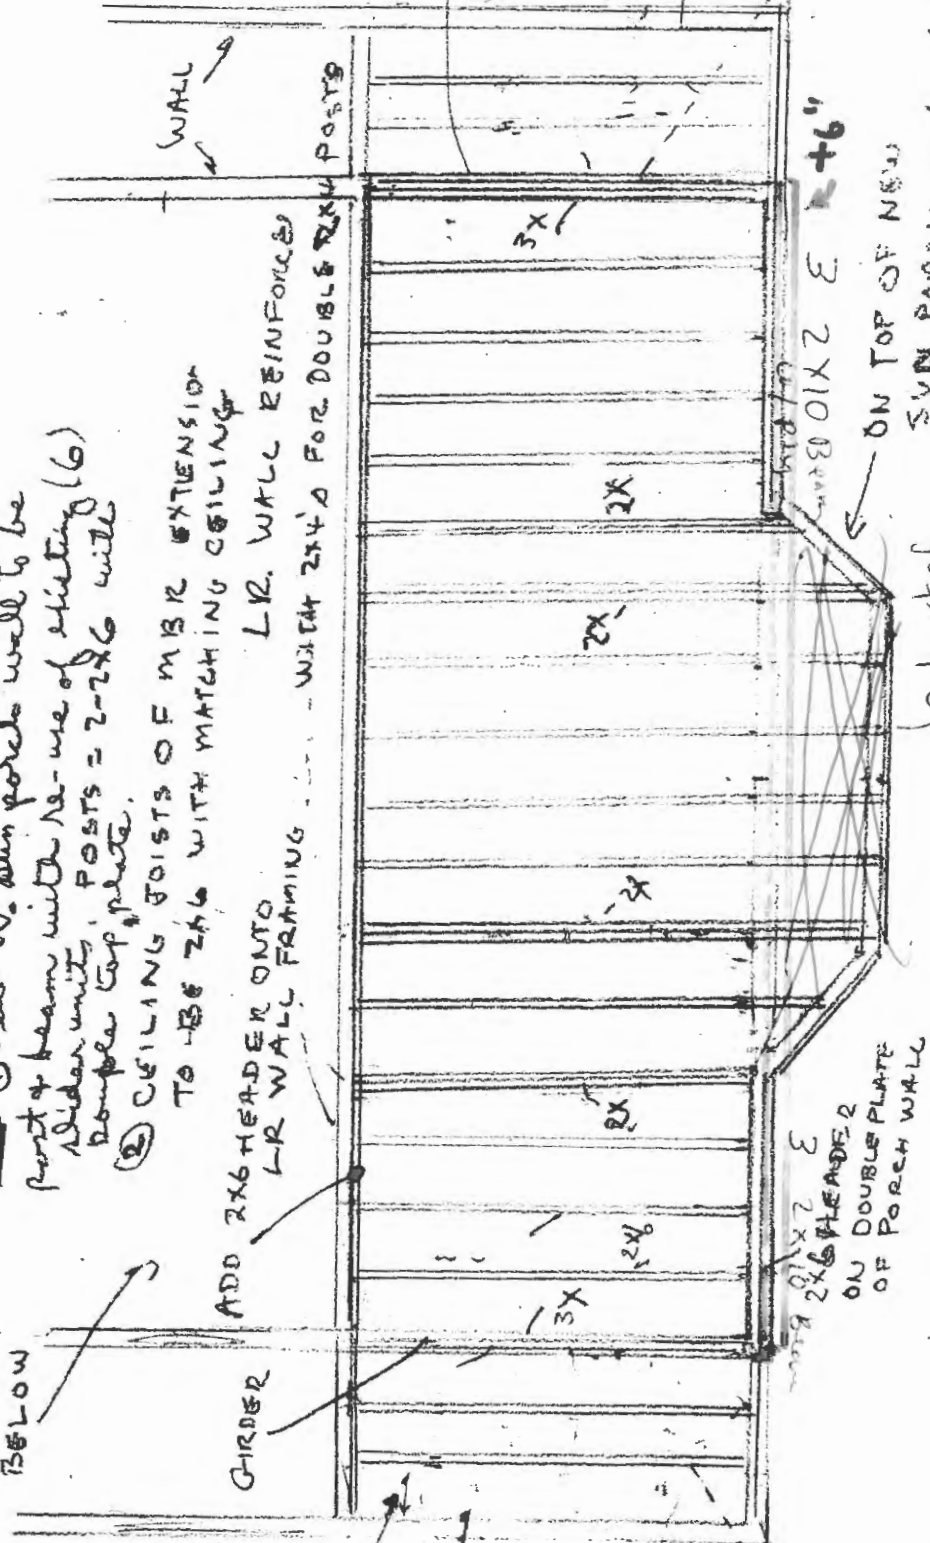 sun porch wall to be
post & beam with re-use of existing (6)
slider units, POSTS = 2-2x6 with
double top plate.
② CEILING JOISTS OF MBR EXTENSION
TO BE 2x6 WITH MATCHING CEILING
BELOW
ADD 2x6 HEADER ONTO
LR WALL FRAMING
LR. WALL REINFORCED
WITH 2x4's FOR DOUBLE 2x4 POSTS
WALL
GIRDER
3X
2x6
2X
2X
2X
2X
3X
3 2x10 Beam
2x6 HEADER
ON DOUBLE PLATE
OF PORCH WALL
3 2x10 Beam
+6"
ON TOP OF NEW
SUN PORCH